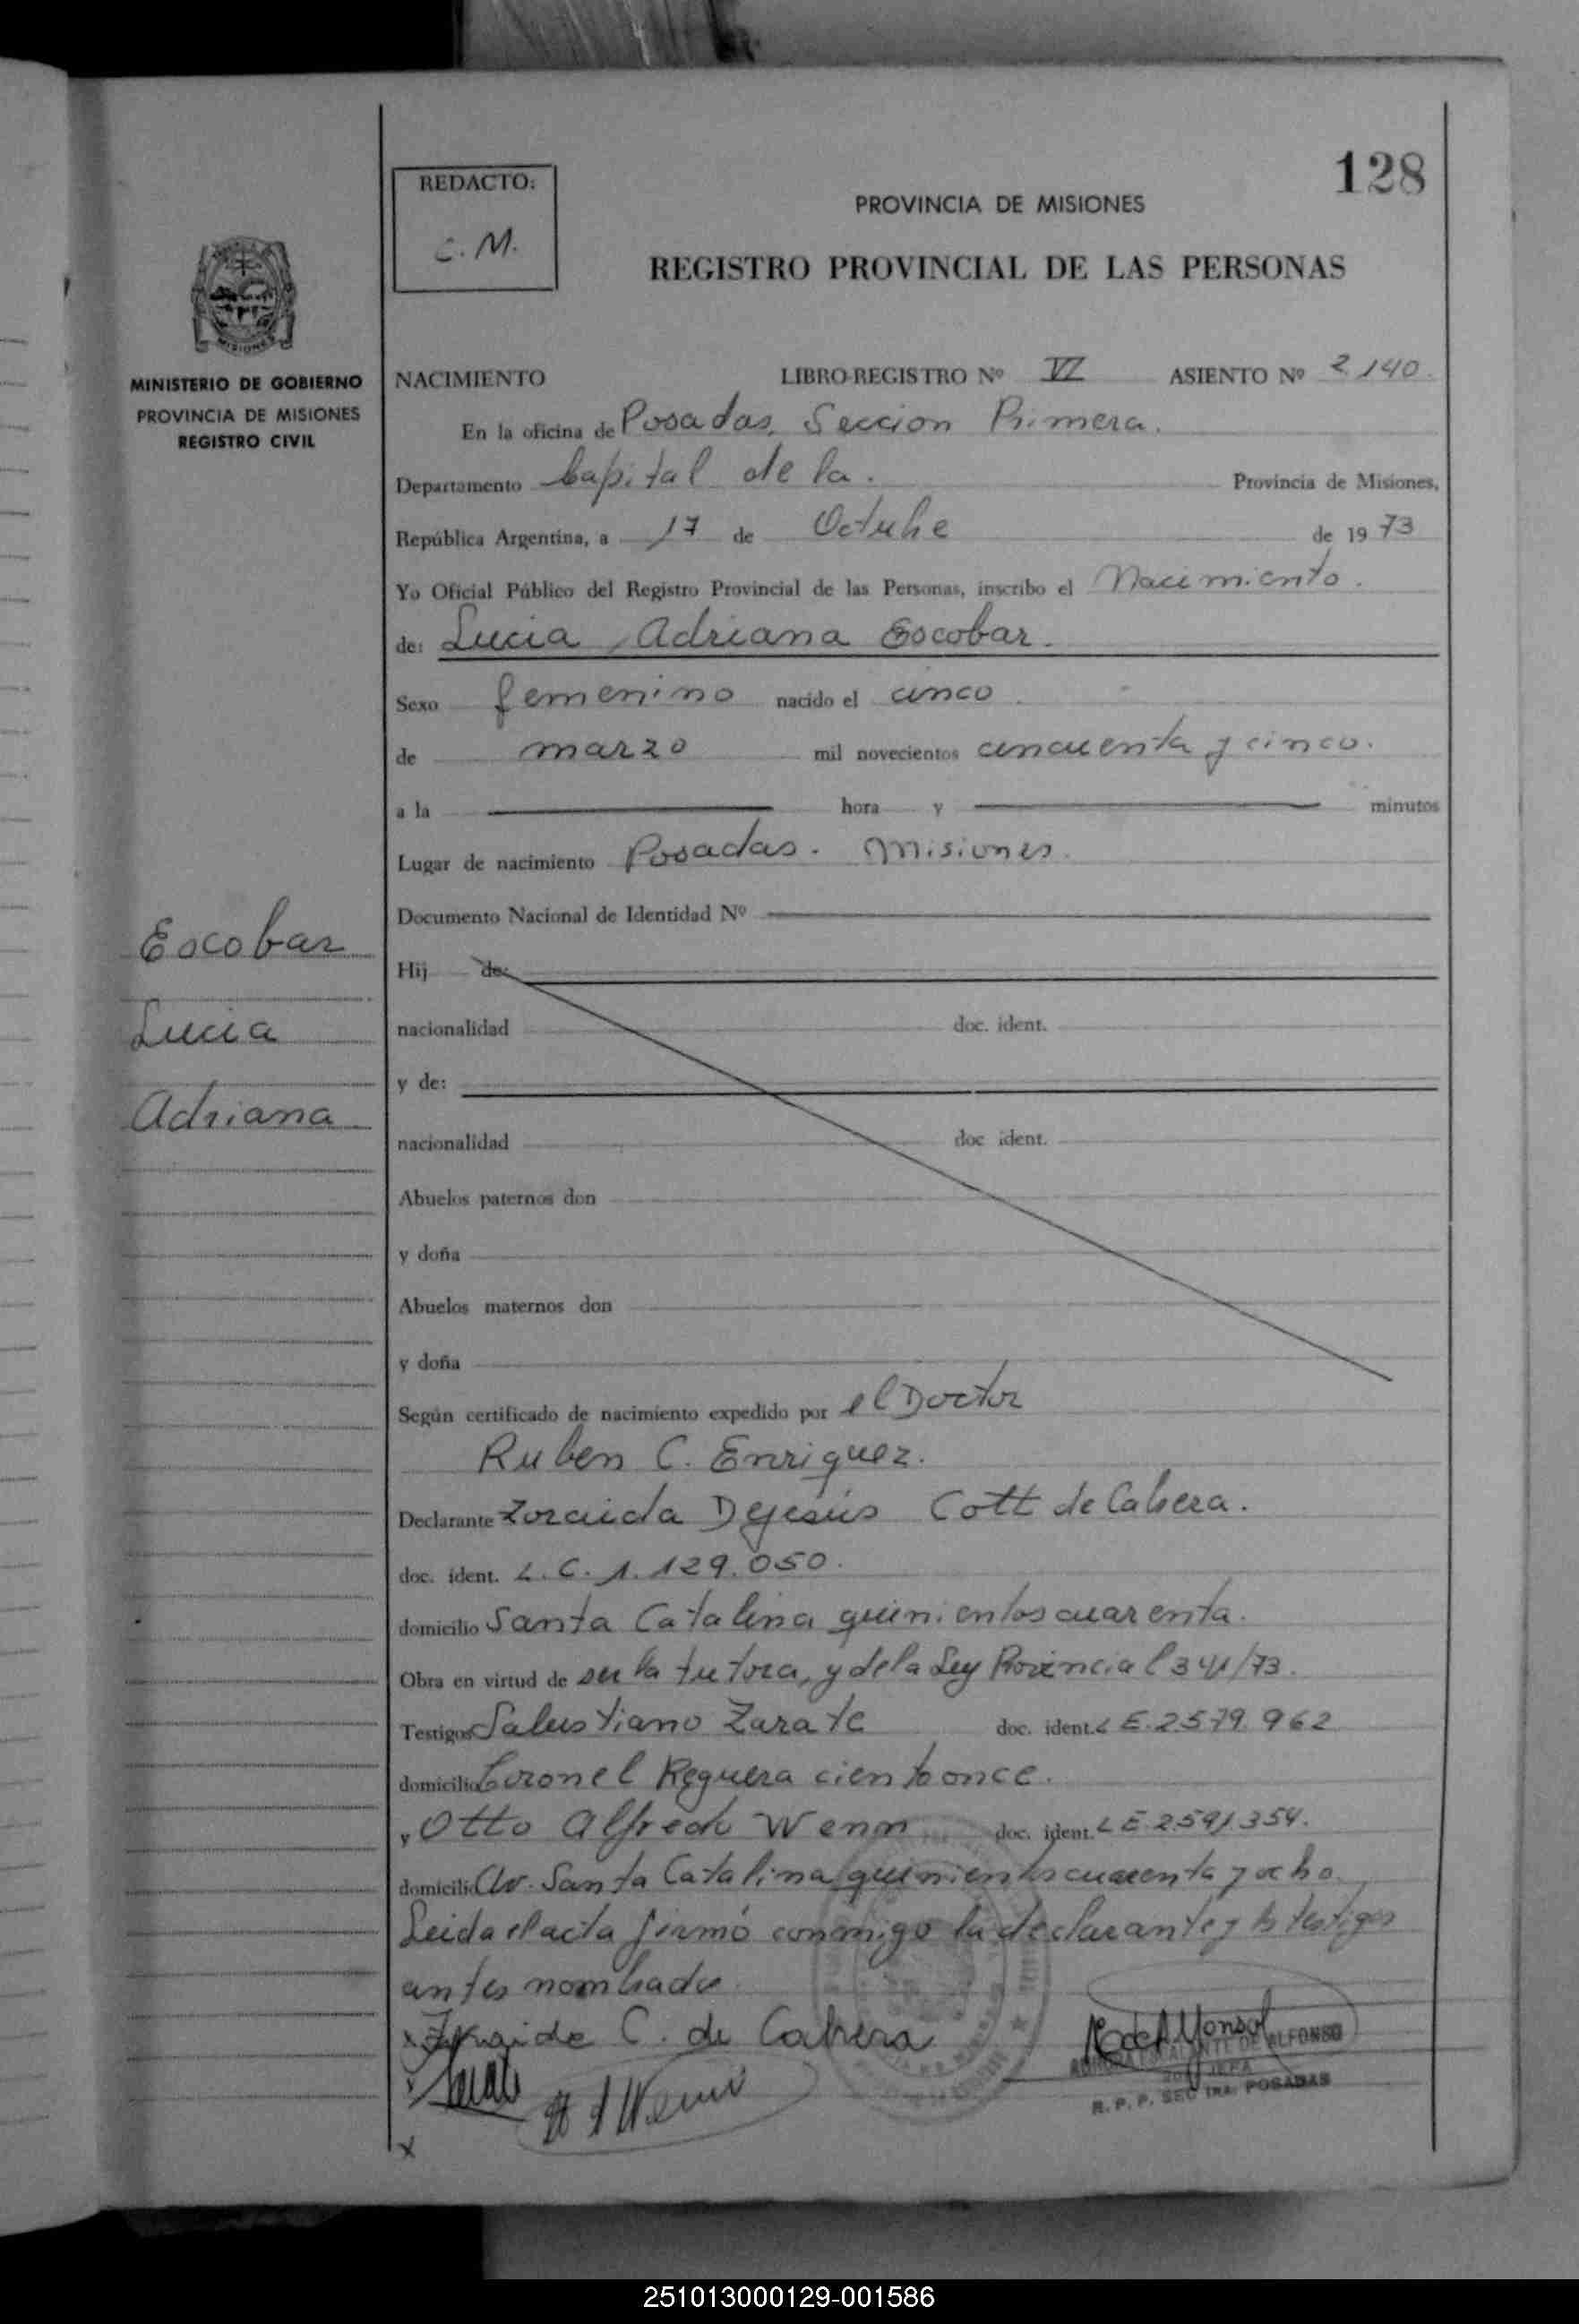 128
REDACTO:
C. M.
PROVINCIA DE MISIONES
REGISTRO PROVINCIAL DE LAS PERSONAS
MISIONES
MINISTERIO DE GOBIERNO
PROVINCIA DE MISIONES
REGISTRO CIVIL
NACIMIENTO LIBRO-REGISTRO Nº VI ASIENTO Nº 2140.
En la oficina de Posadas, Seccion Primera.
Departamento Capital de la. Provincia de Misiones,
República Argentina, a 17 de Octubre de 19 73
Yo Oficial Público del Registro Provincial de las Personas, inscribo el Nacimiento.
de: Lucia Adriana Escobar.
Sexo femenino nacido el cinco
de marzo mil novecientos cincuenta y cinco.
a la hora y minutos
Lugar de nacimiento Posadas. Misiones.
Documento Nacional de Identidad Nº
Escobar
Lucia
Adriana
Hij de:
nacionalidad doc. ident.
y de:
nacionalidad doc ident.
Abuelos paternos don
y doña
Abuelos maternos don
y doña
Según certificado de nacimiento expedido por el Doctor
Ruben C. Enriquez.
Declarante Zoraida Dejesús Cott de Cabrera.
doc. ident. L. C. 1.129.050.
domicilio Santa Catalina quinientos cuarenta.
Obra en virtud de ser la tutora, y de la Ley Provincial 341/73.
Testigos Salustiano Zarate doc. ident. L E. 2579.962
domicilio Coronel Reguera ciento once.
y Otto Alfredo Wenn doc. ident. L E 2.591.354.
domicilio Av. Santa Catalina quinientos cuarenta y ocho.
Leida el acta firmó conmigo la declarante y los testigos
antes nombrados.
x Zoraida C. de Cabrera
x
x
DE ALFONSO
JEFA
R. P. P. SEC 1RA. POSADAS
251013000129-001586